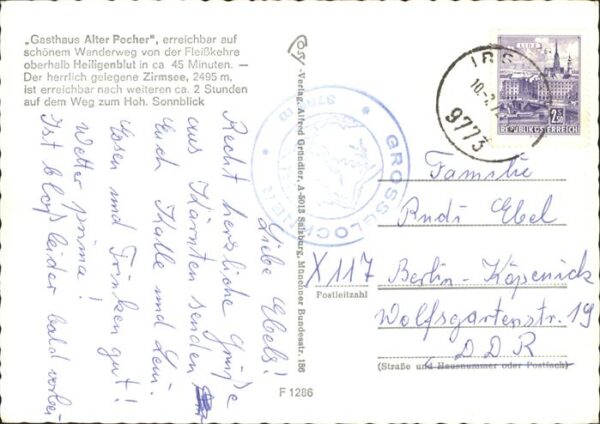 „Gasthaus Alter Pocher", erreichbar auf
schönem Wanderweg von der Fleißkehre
oberhalb Heiligenblut in ca 45 Minuten. —
Der herrlich gelegene Zirmsee, 2495 m,
ist erreichbar nach weiteren ca. 2 Stunden
auf dem Weg zum Hoh. Sonnblick
Liebe Ebels!
Recht herzliche Grüße
aus Kärnten senden
Euch Kalle und
Essen und Trinken gut!
Wetter prima!
Ist bloß leider bald vorbei
-Verlag Alfred Gründler, A-5013 Salzburg, Münchner Bundesstr. 156
GROSSGLOCKNER
9773
LINZ
2.50
REPUBLIK ÖSTERREICH
Familie
Rudi Ebel
X 117 Berlin-Köpenick
Postleitzahl
Wolfsgartenstr. 19
DDR
(Straße und Hausnummer oder Postfach)
F 1286